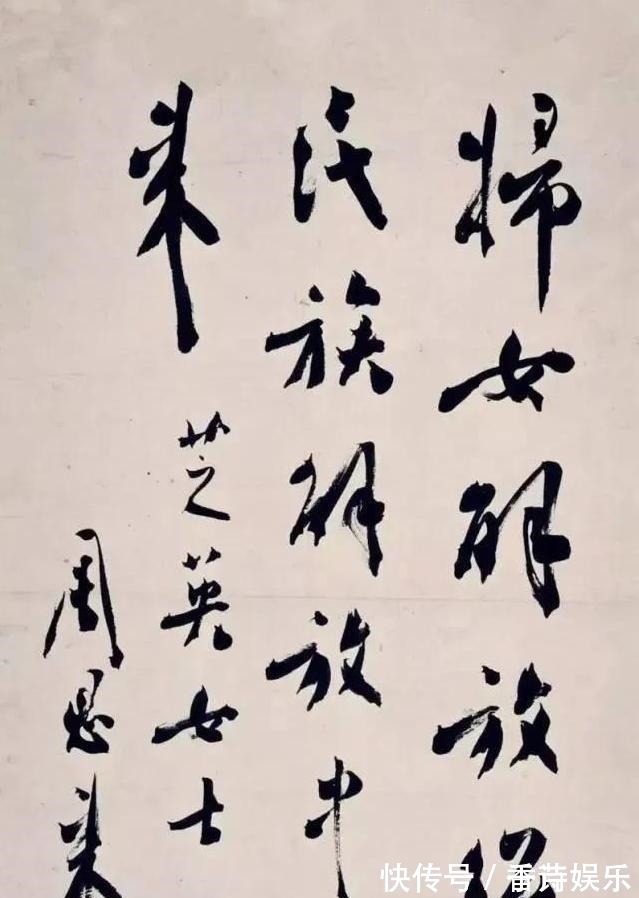 婦女解放
民族解放中
来
芝英女士
周恩来
快传号 / 香莳娱乐